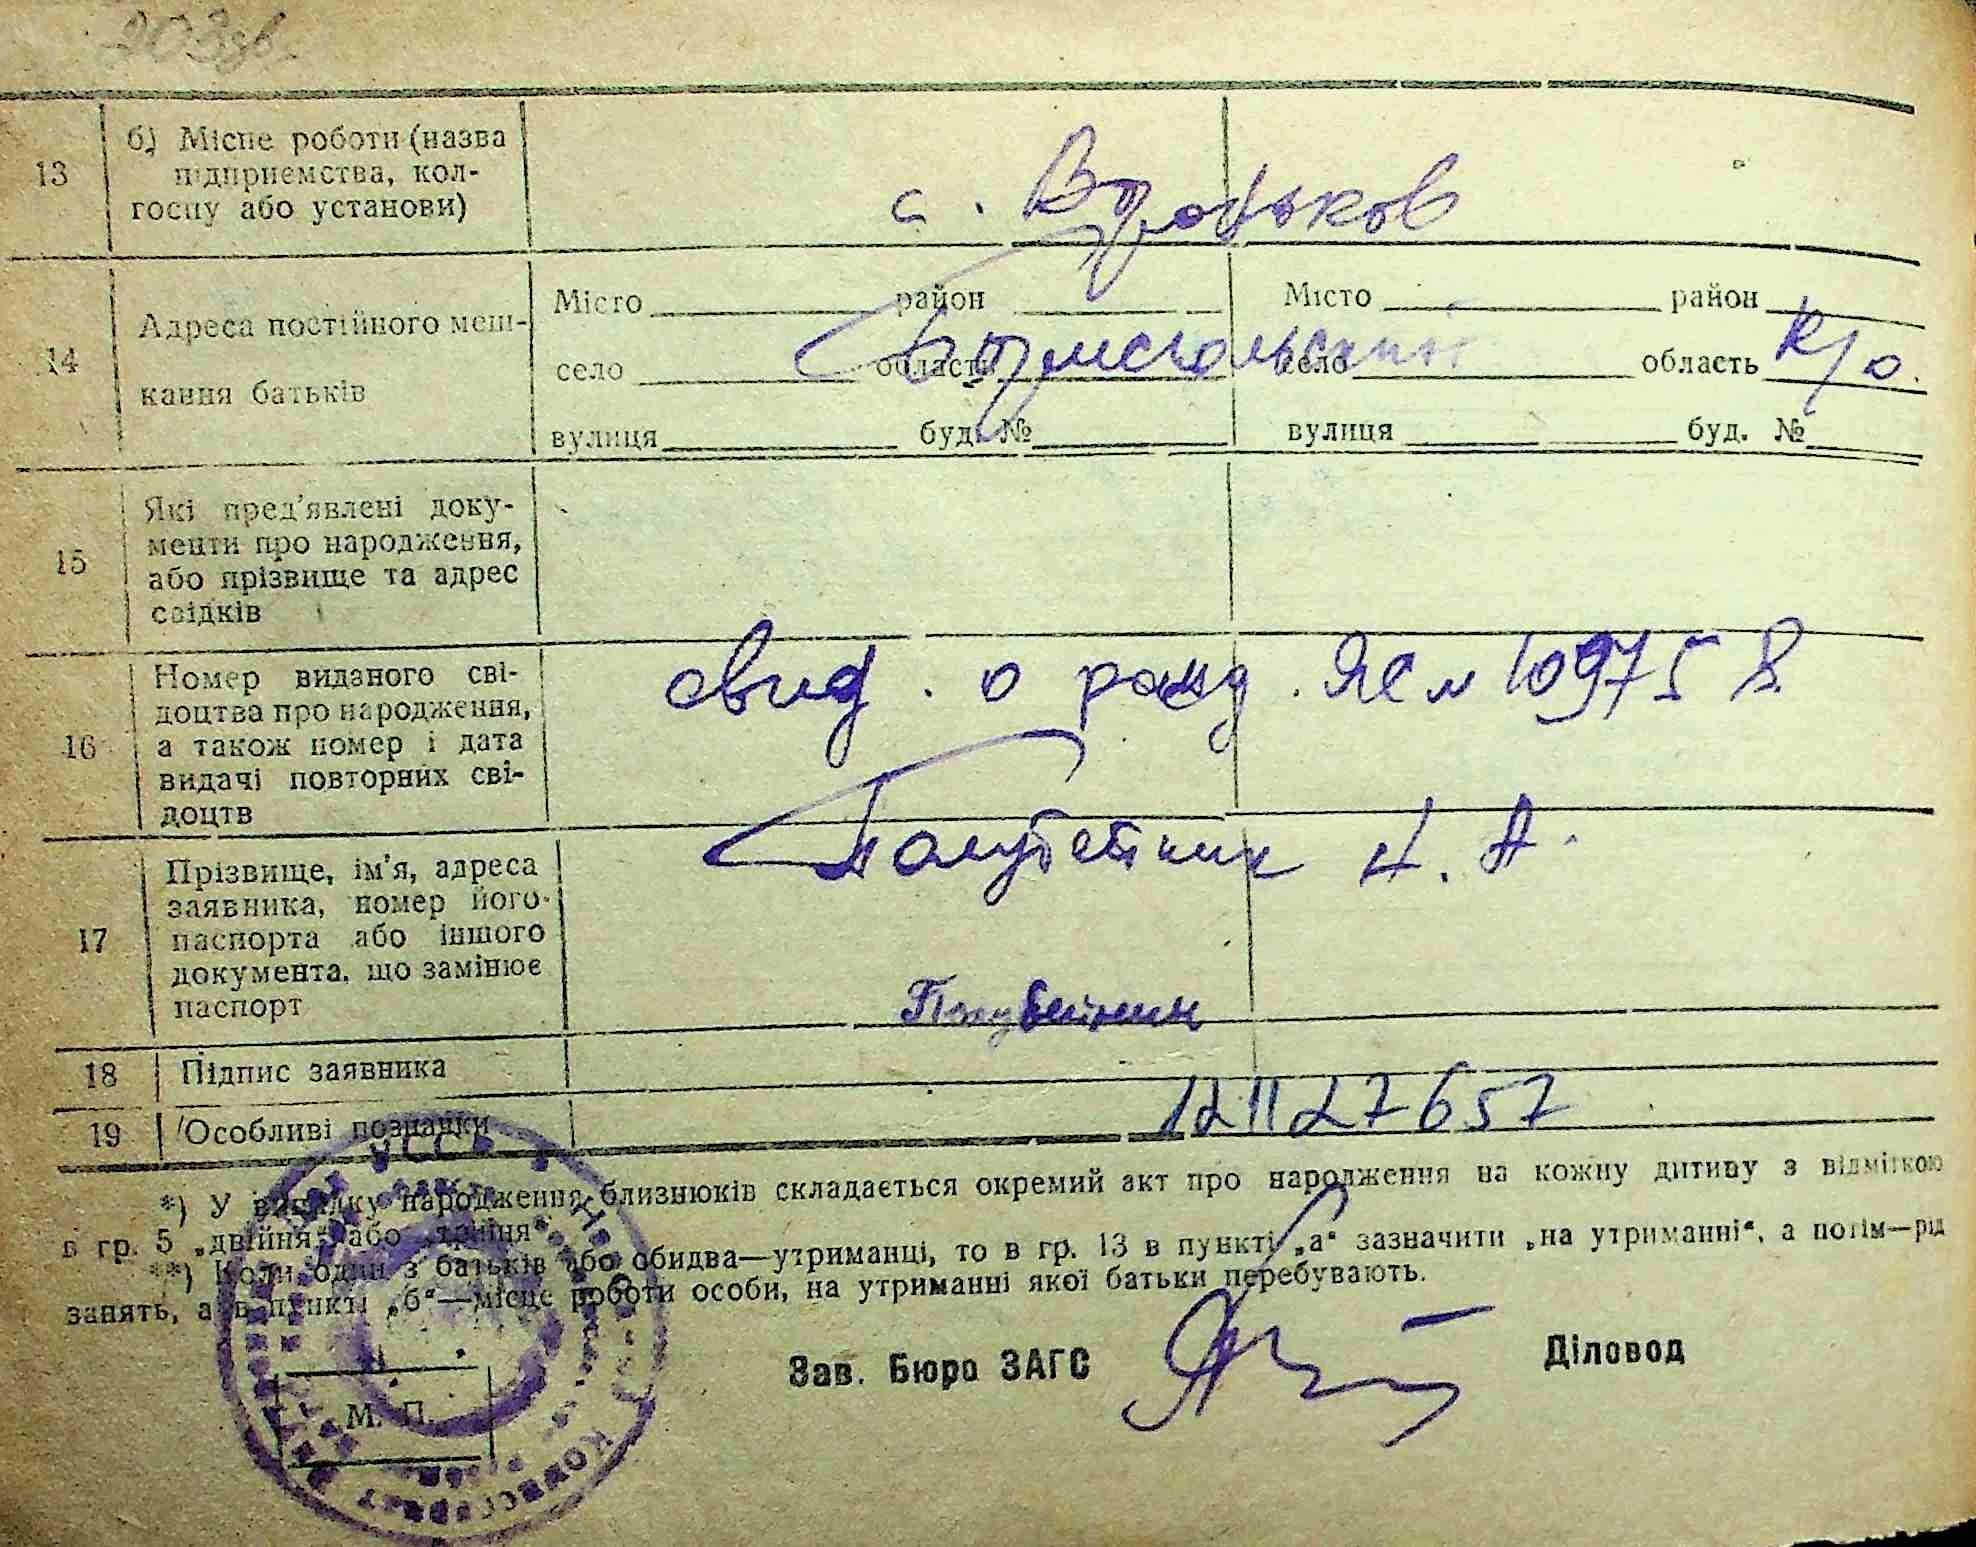 203зв.
13
б) Місце роботи (назва
підприємства, кол-
госпу або установи)
с.
14
Адреса постійного меш-
кання батьків
Місто район Місто район
село область село область
К/о.
вулиця буд. № вулиця буд. №
15
Які пред'явлені доку-
менти про народження,
або прізвище та адрес
свідків
16
Номер виданого сві-
доцтва про народження,
а також номер і дата
видачі повторних сві-
доцтв
свид. о рожд. ЯС № 109758
17
Прізвище, ім'я, адреса
заявника, номер його
паспорта або іншого
документа, що замінює
паспорт
18 Підпис заявника
19 Особливі позначки
121127657
*) У випадку народження близнюків складається окремий акт про народження на кожну дитину з відміткою
в гр. 5 „двійня“ або „трійня“
**) Коли один з батьків або обидва—утриманці, то в гр. 13 в пункті „а“ зазначити „на утриманні“, а потім—рід
занять, а в пункті „б“—місце роботи особи, на утриманні якої батьки перебувають.
Зав. Бюро ЗАГС Діловод
М. П.